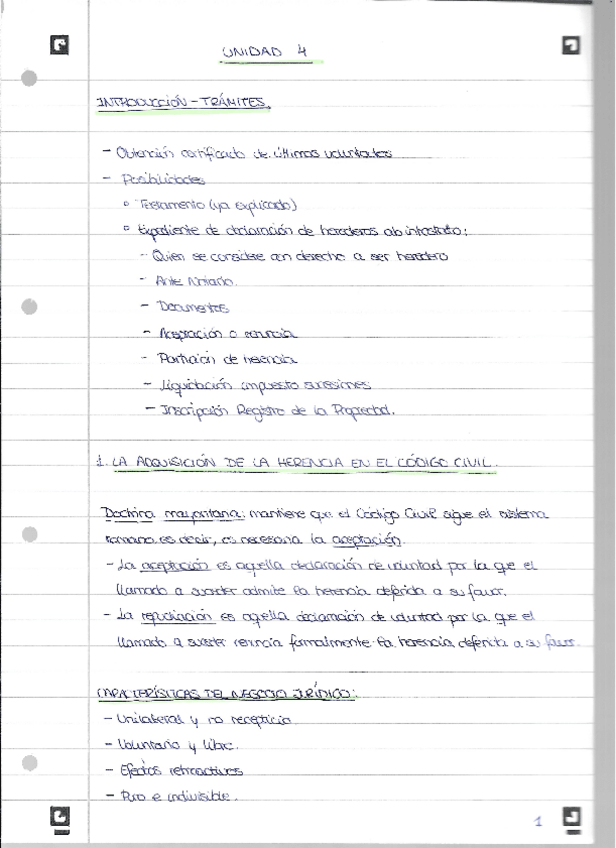 UNIDAD 4
INTRODUCCIÓN - TRÁMITES.
- Obtención certificado de últimas voluntades
- Posibilidades
° Testamento (ya explicado)
° Expediente de declaración de herederos ab intestato:
- Quien se considere con derecho a ser heredero
- Ante Notario.
- Documentos
- Aceptación o renuncia
- Partición de herencia
- Liquidación impuesto sucesiones
- Inscripción Registro de la Propiedad.
1. LA ADQUISICIÓN DE LA HERENCIA EN EL CÓDIGO CIVIL.
Doctrina mayoritaria: mantiene que el Código Civil sigue el sistema
romano es decir, es necesaria la aceptación.
- La aceptación es aquella declaración de voluntad por la que el
llamado a suceder admite la herencia deferida a su favor.
- La repudiación es aquella declaración de voluntad por la que el
llamado a suceder renuncia formalmente la herencia deferida a su favor.
CARACTERÍSTICAS DEL NEGOCIO JURÍDICO:
- Unilateral y no recepticio
- Voluntario y libre.
- Efectos retroactivos
- Puro e indivisible.
1